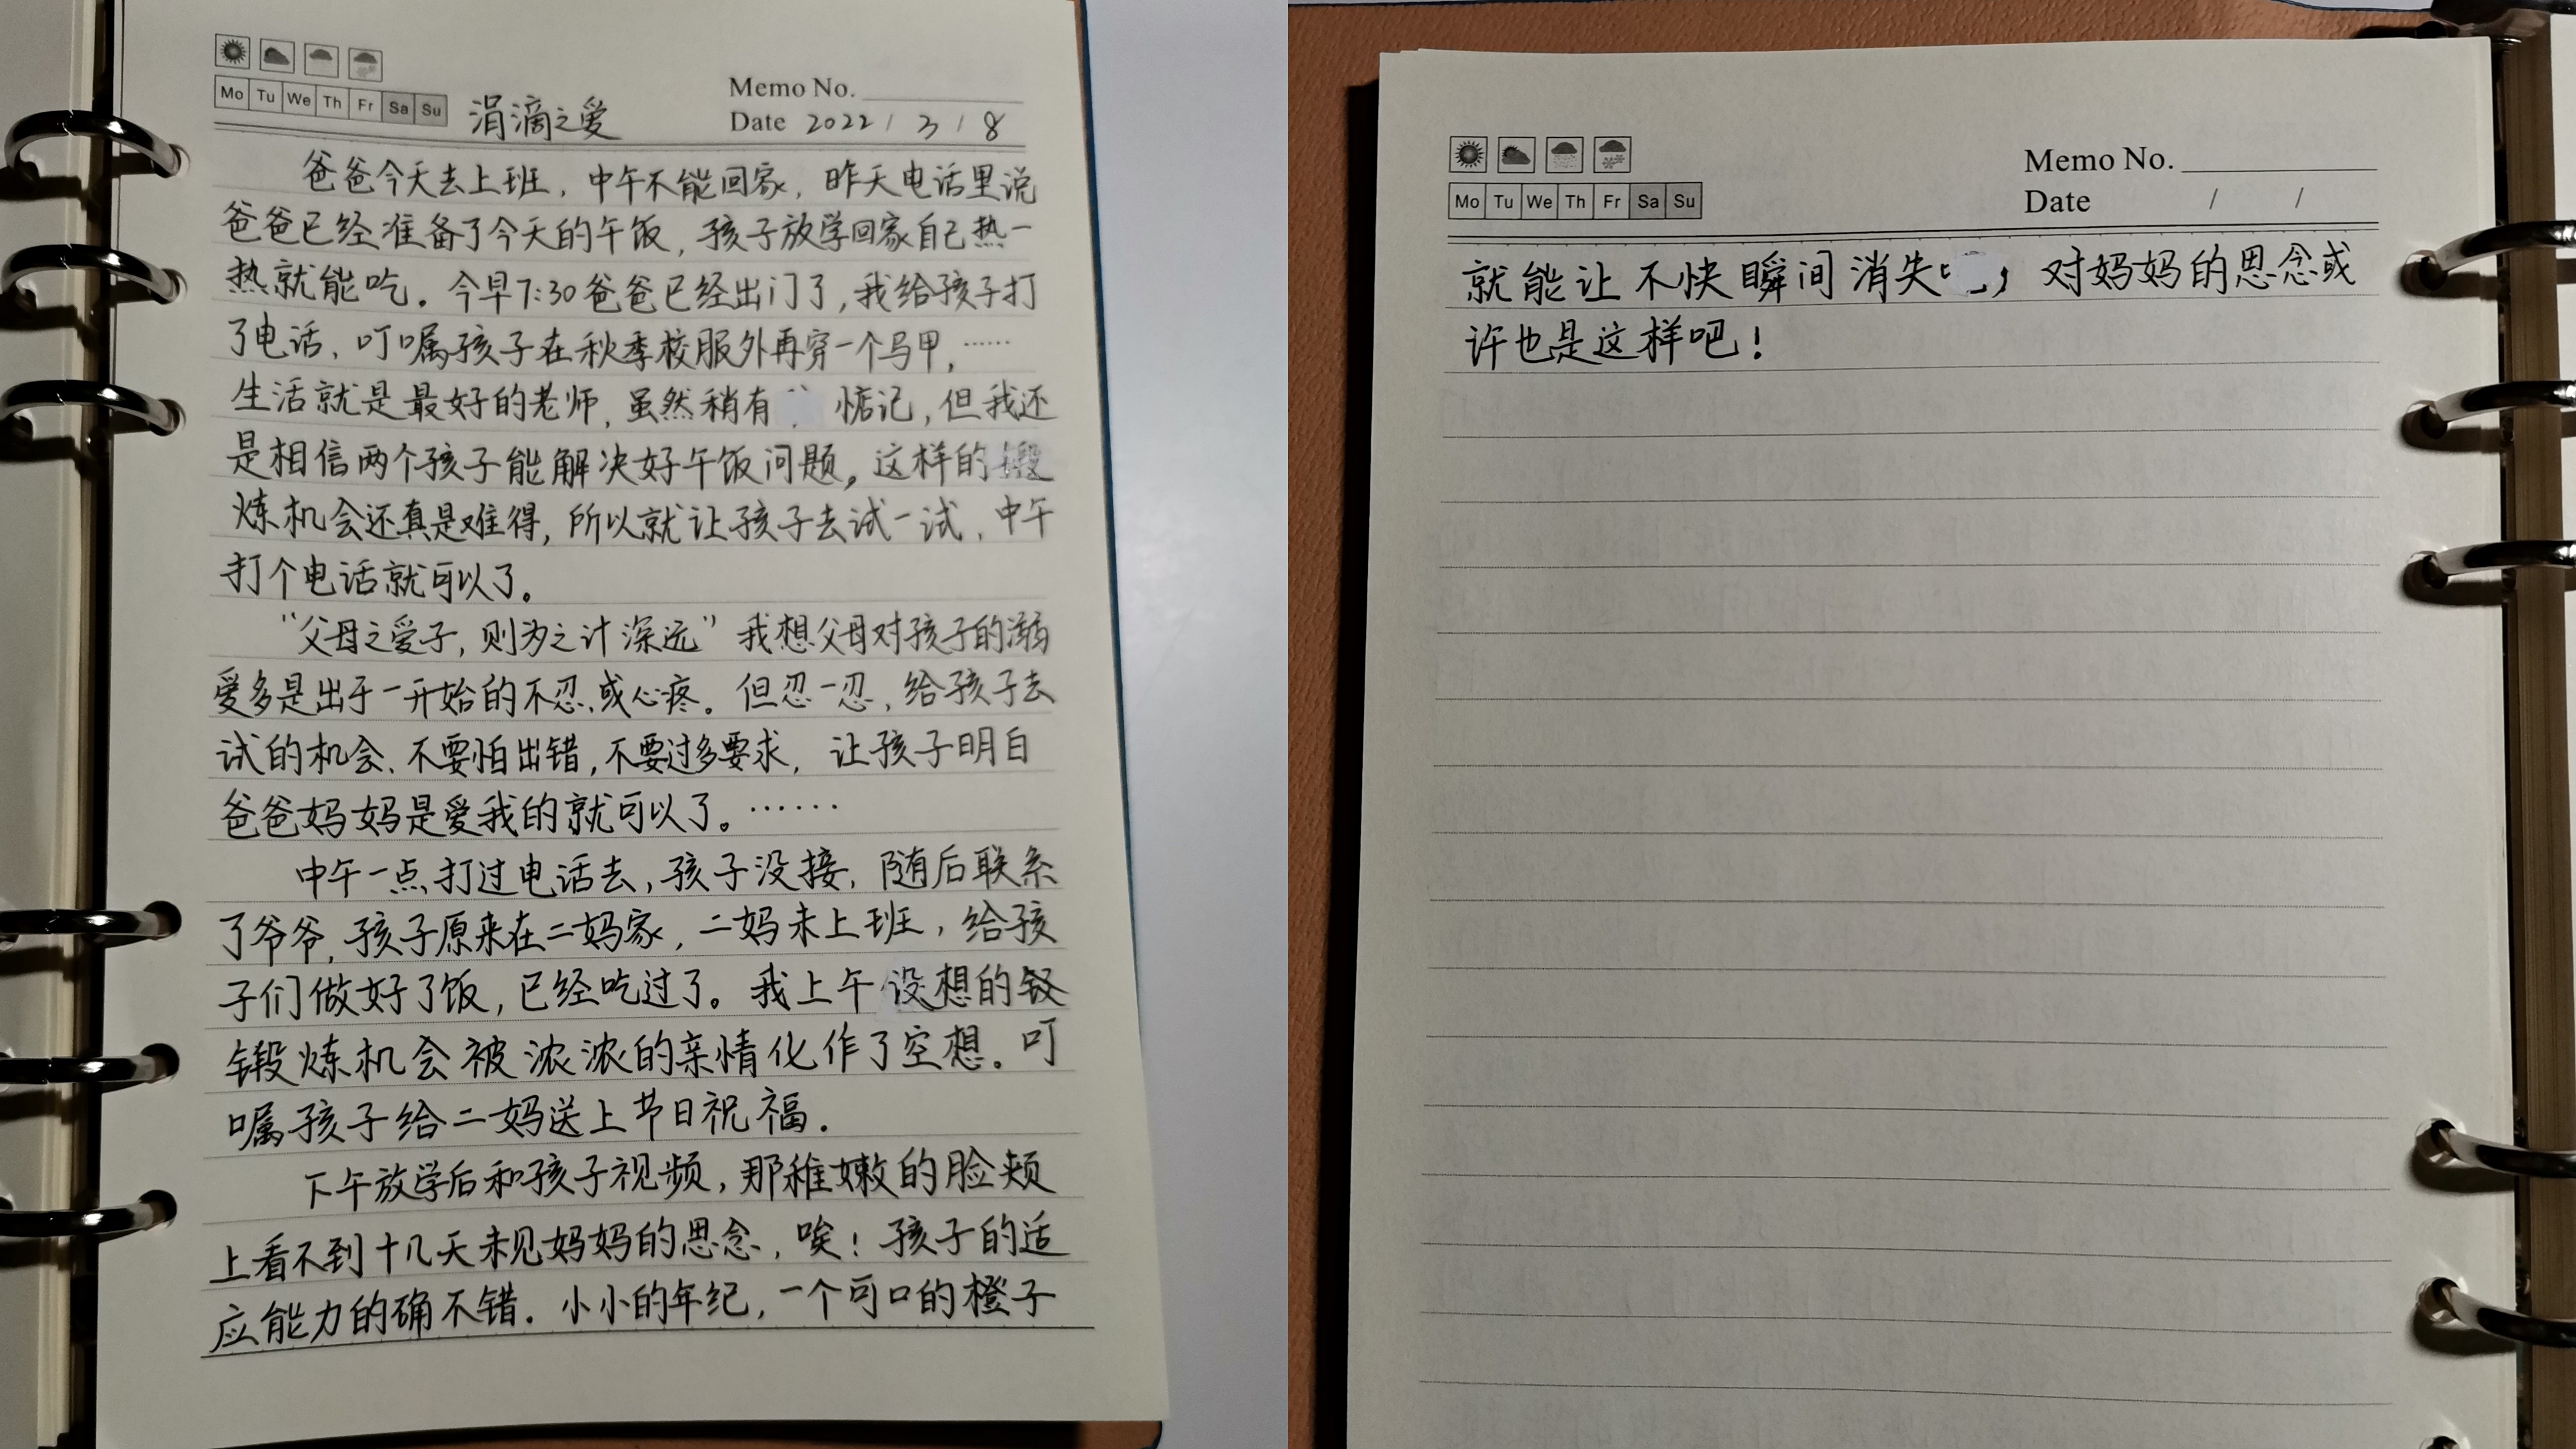 Mo Tu We Th Fr Sa Su
涓滴之爱
Memo No.
Date 2022 / 3 / 8
爸爸今天去上班，中午不能回家，昨天电话里说
爸爸已经准备了今天的午饭，孩子放学回家自己热一
热就能吃。今早7:30爸爸已经出门了，我给孩子打
了电话、叮嘱孩子在秋季校服外再穿一个马甲，……
生活就是最好的老师，虽然稍有惦记，但我还
是相信两个孩子能解决好午饭问题。这样的锻
炼机会还真是难得，所以就让孩子去试一试，中午
打个电话就可以了。
“父母之爱子，则为之计深远”我想父母对孩子的溺
爱多是出于一开始的不忍、或心疼。但忍一忍，给孩子去
试的机会、不要怕出错，不要过多要求，让孩子明白
爸爸妈妈是爱我的就可以了。……
中午一点打过电话去，孩子没接，随后联系
了爷爷，孩子原来在二妈家，二妈未上班，给孩
子们做好了饭，已经吃过了。我上午设想的
锻炼机会被浓浓的亲情化作了空想。叮
嘱孩子给二妈送上节日祝福.
下午放学后和孩子视频，那稚嫩的脸颊
上看不到十几天未见妈妈的思念，唉！孩子的适
应能力的确不错.小小的年纪，一个可口的橙子
Mo Tu We Th Fr Sa Su
Memo No.
Date / /
就能让不快瞬间消失，对妈妈的思念或
许也是这样吧！